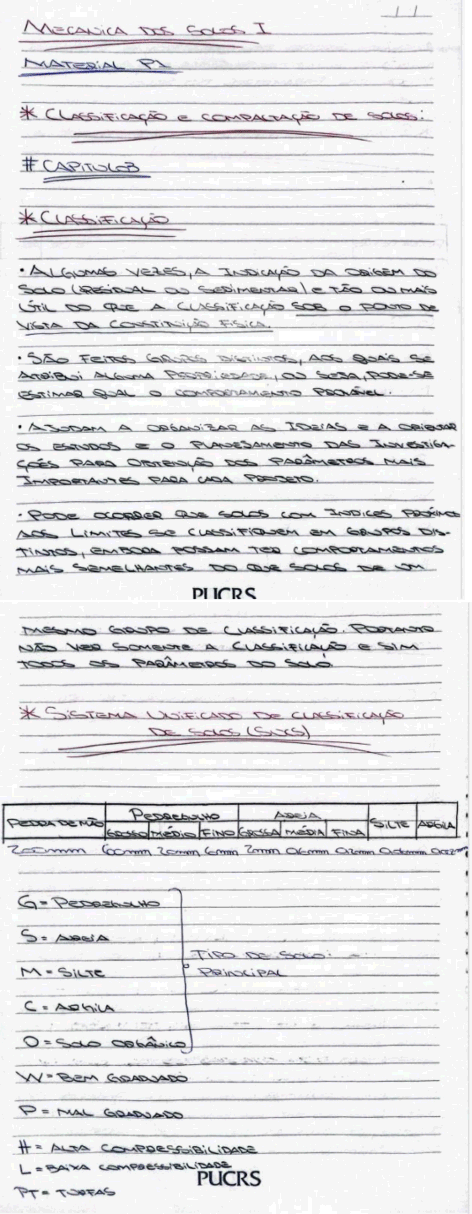 MECANICA DOS SOLOS I
MATERIAL P1
* CLASSIFICAÇÃO E COMPACTAÇÃO DE SOLOS:
# CAPITULO 3
* CLASSIFICAÇÃO
• ALGUMAS VEZES, A INDICAÇÃO DA ORIGEM DO
SOLO (RESIDUAL OU SEDIMENTAR) É TÃO OU MAIS
ÚTIL DO QUE A CLASSIFICAÇÃO SOB O PONTO DE
VISTA DA CONSTITUIÇÃO FÍSICA.
• SÃO FEITOS GRUPOS DISTINTOS, AOS QUAIS SE
ATRIBUI ALGUMA PROPRIEDADE, OU SEJA, PODE-SE
ESTIMAR QUAL O COMPORTAMENTO PROVÁVEL.
• AJUDAM A ORGANIZAR AS IDEIAS E A ORIENTAR
OS ESTUDOS E O PLANEJAMENTO DAS INVESTIGA-
ÇÕES PARA OBTENÇÃO DOS PARÂMETROS MAIS
IMPORTANTES PARA CADA PROJETO.
• PODE OCORRER QUE SOLOS COM INDICES PRÓXIMOS
AOS LIMITES SE CLASSIFIQUEM EM GRUPOS DIS-
TINTOS, EMBORA POSSAM TER COMPORTAMENTOS
MAIS SEMELHANTES DO QUE SOLOS DE UM
PUCRS
MESMO GRUPO DE CLASSIFICAÇÃO. PORTANTO
NÃO VER SOMENTE A CLASSIFICAÇÃO E SIM
TODOS OS PARÂMETROS DO SOLO
* SISTEMA UNIFICADO DE CLASSIFICAÇÃO
DE SOLOS (SUCS)
PEDRA DE MÃO PEDREGULHO AREIA SILTE ARGILA
GROSSO MÉDIO FINO GROSSA MÉDIA FINA
200mm 60mm 20mm 6mm 2mm 0,6mm 0,2mm 0,06mm 0,002mm
G = PEDREGULHO
S = AREIA
TIPO DE SOLO
M = SILTE
PRINCIPAL
C = ARGILA
O = SOLO ORGÂNICO
W = BEM GRADUADO
P = MAL GRADUADO
H = ALTA COMPRESSIBILIDADE
L = BAIXA COMPRESSIBILIDADE
PUCRS
PT = TURFAS